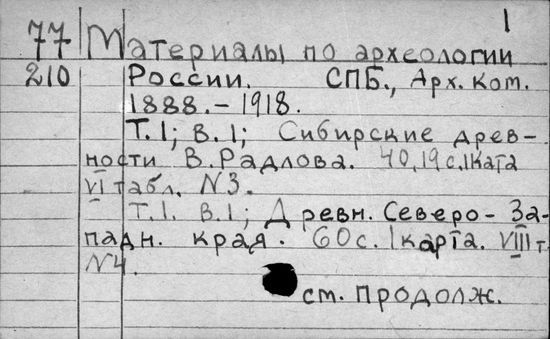 1
77 Материалы по археологии
210 России. СПБ., Арх. ком.
1888.-1918.
Т. 1; в. 1; Сибирские древ-
ности В. Радлова. 40, 19 с. 1 ката
VI табл. № 3.
Т. 1. в. 1; Древн. Северо-За-
падн. края. 60 с. 1 карта. VIII т.
№ 4.
ст. продолж.